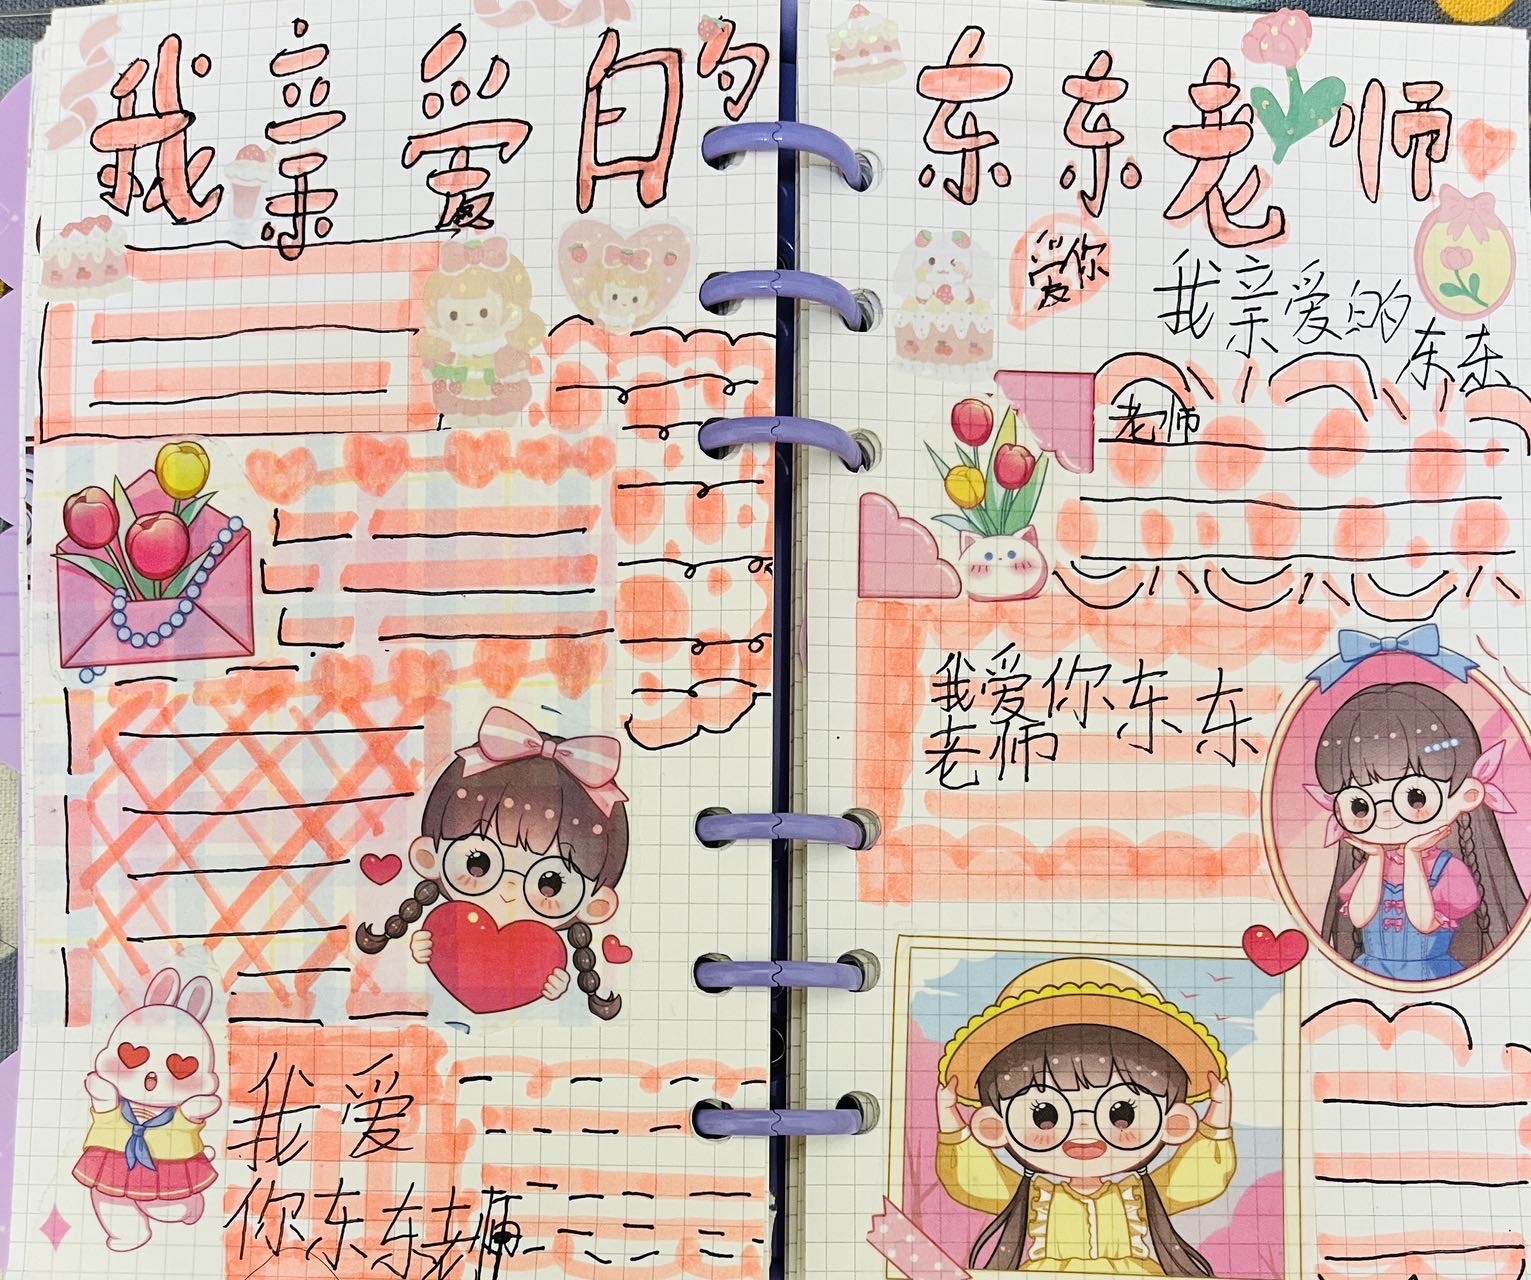 我亲爱的
我爱
你东东老师
东东老师
爱你
我亲爱的东东
老师
我爱你东东
老师